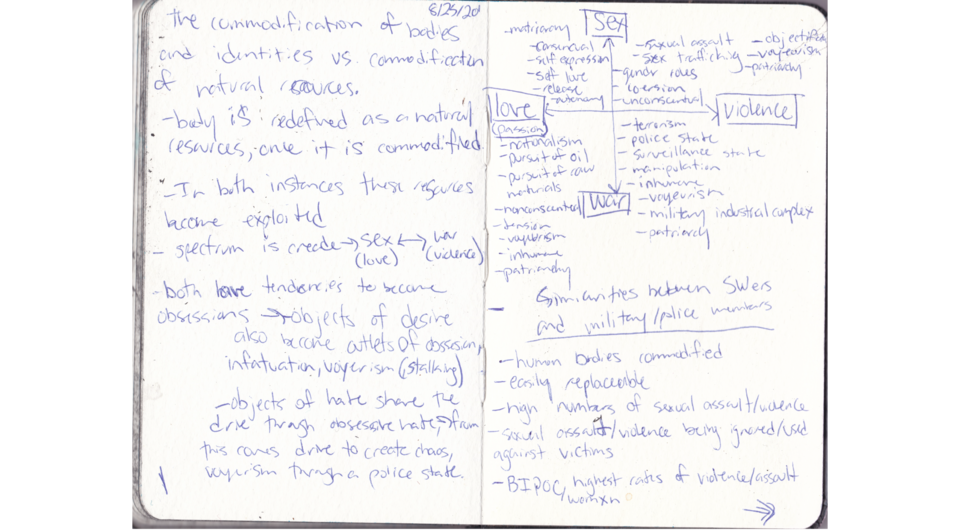 8/25/20
the commodification of bodies
and identities vs commodification
of natural resources.
-body is redefined as a natural
resources, once it is commodified.
-In both instances these resources
become exploited
- spectrum is create → sex ↔ war
(love) (violence)
-both love tendencies to become
obsessions → objects of desire
also become outlets of obsession,
infatuation, voyerism (stalking)
-objects of hate share the
drive through obsessive hate, → from
this comes drive to create chaos,
voyerism through a police state.
Sex
-matriarchy
-consensual
-self expression
-self love
-release
-autonomy
-sexual assault
-sex trafficking
-gender roles
-coersion
-unconsentual
-objectified
-voyeurism
-patriarchy
love
(passion)
violence
-naturalism
-pursuit of oil
-pursuit of raw
materials
-nonconsented
-tension
-voyeurism
-inhumane
-patriarchy
-terrorism
-police state
-surveillance state
-manipulation
-inhumane
-voyeurism
-military industrial complex
-patriarchy
war
- Similarities between SWers
and military/police members
-human bodies commodified
-easily replaceable
-high numbers of sexual assault/violence
-sexual assault/violence being ignored/used
against victims
-BIPOC, highest rates of violence/assault
womxn